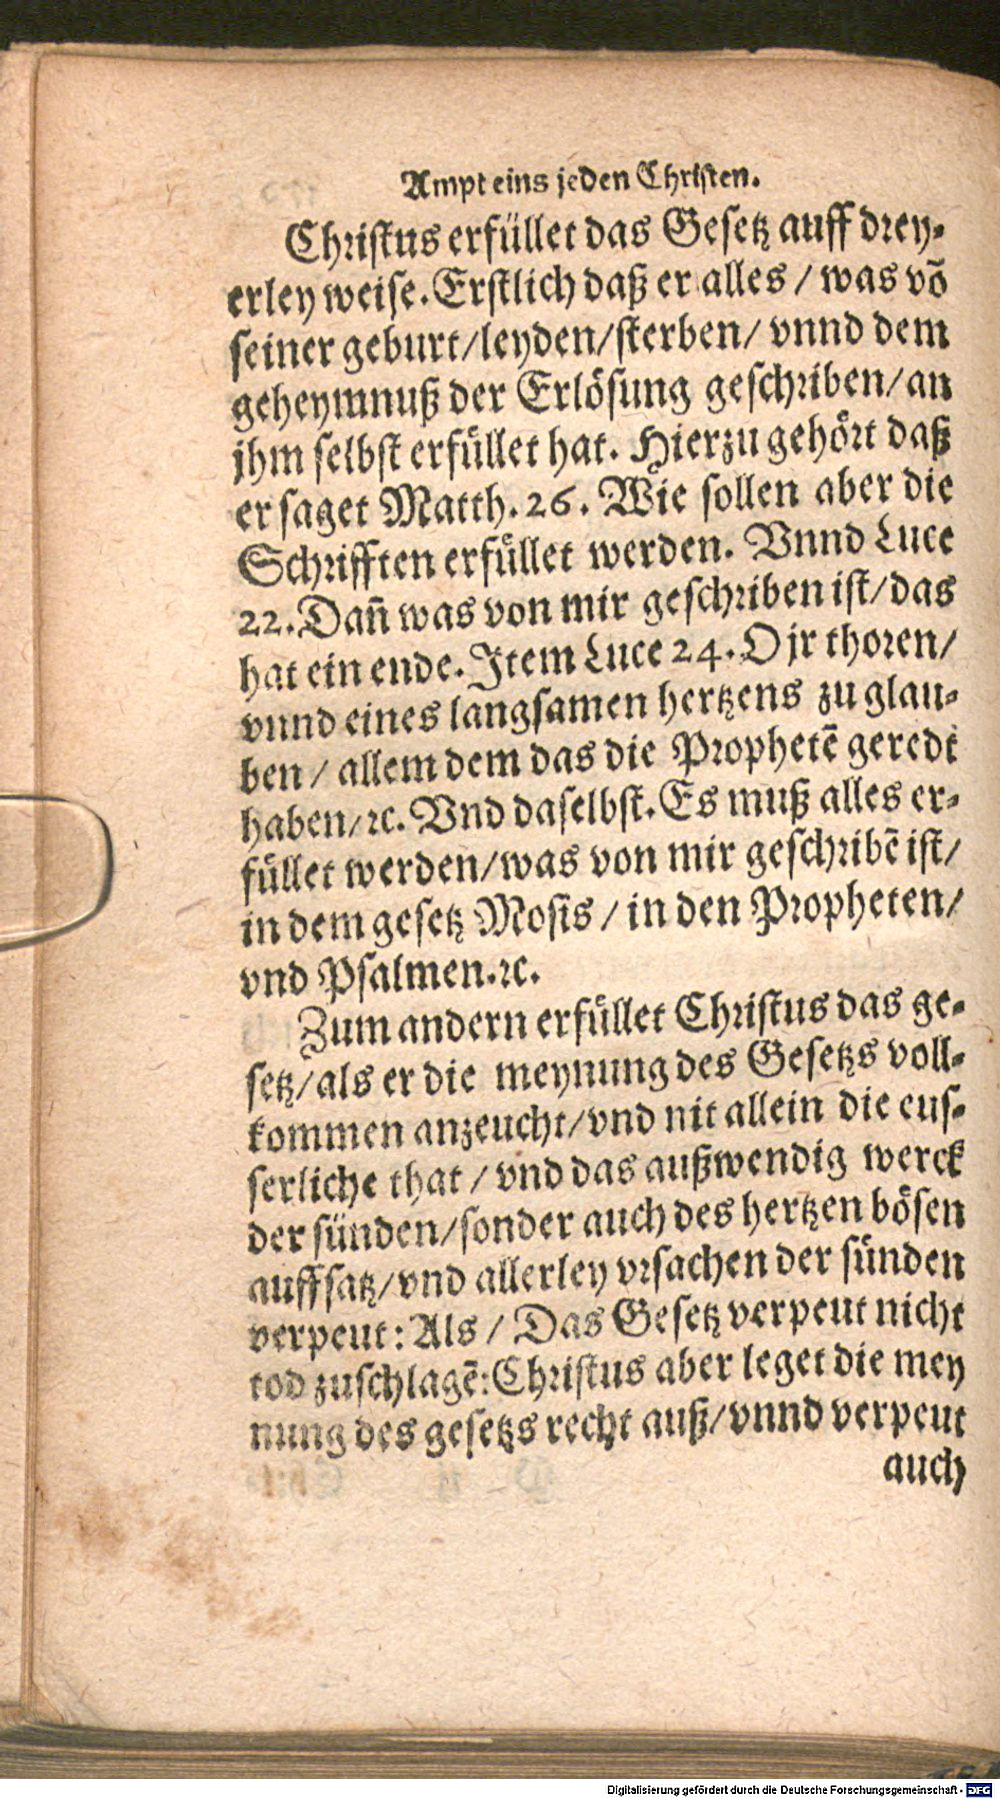 Ampt eins jeden Christen.
Christus erfüllet das Gesetz auff drey-
erley weise. Erstlich daß er alles / was võ
seiner geburt/leyden/sterben/ vnnd dem
geheymnuß der Erlösung geschriben/an
jhm selbst erfüllet hat. Hierzu gehört daß
er saget Matth. 26. Wie sollen aber die
Schrifften erfüllet werden. Vnnd Luce
22. Dañ was von mir geschriben ist/das
hat ein ende. Item Luce 24. O jr thoren/
vnnd eines langsamen hertzens zu glau-
ben / allem dem das die Prophetẽ geredt
haben/ꝛc. Vnd daselbst. Es muß alles er-
füllet werden/was von mir geschribẽ ist/
in dem gesetz Mosis / in den Propheten/
vnd Psalmen.ꝛc.
Zum andern erfüllet Christus das ge-
setz/als er die meynung des Gesetzs voll-
kommen anzeucht/vnd nit allein die eus-
serliche that / vnd das außwendig werck
der sünden/sonder auch des hertzen bösen
auffsatz/vnd allerley vrsachen der sünden
verpeut: Als / Das Gesetz verpeut nicht
tod zuschlagẽ: Christus aber leget die mey
nung des gesetzs recht auß/vnnd verpeut
auch
Digitalisierung gefördert durch die Deutsche Forschungsgemeinschaft - DFG